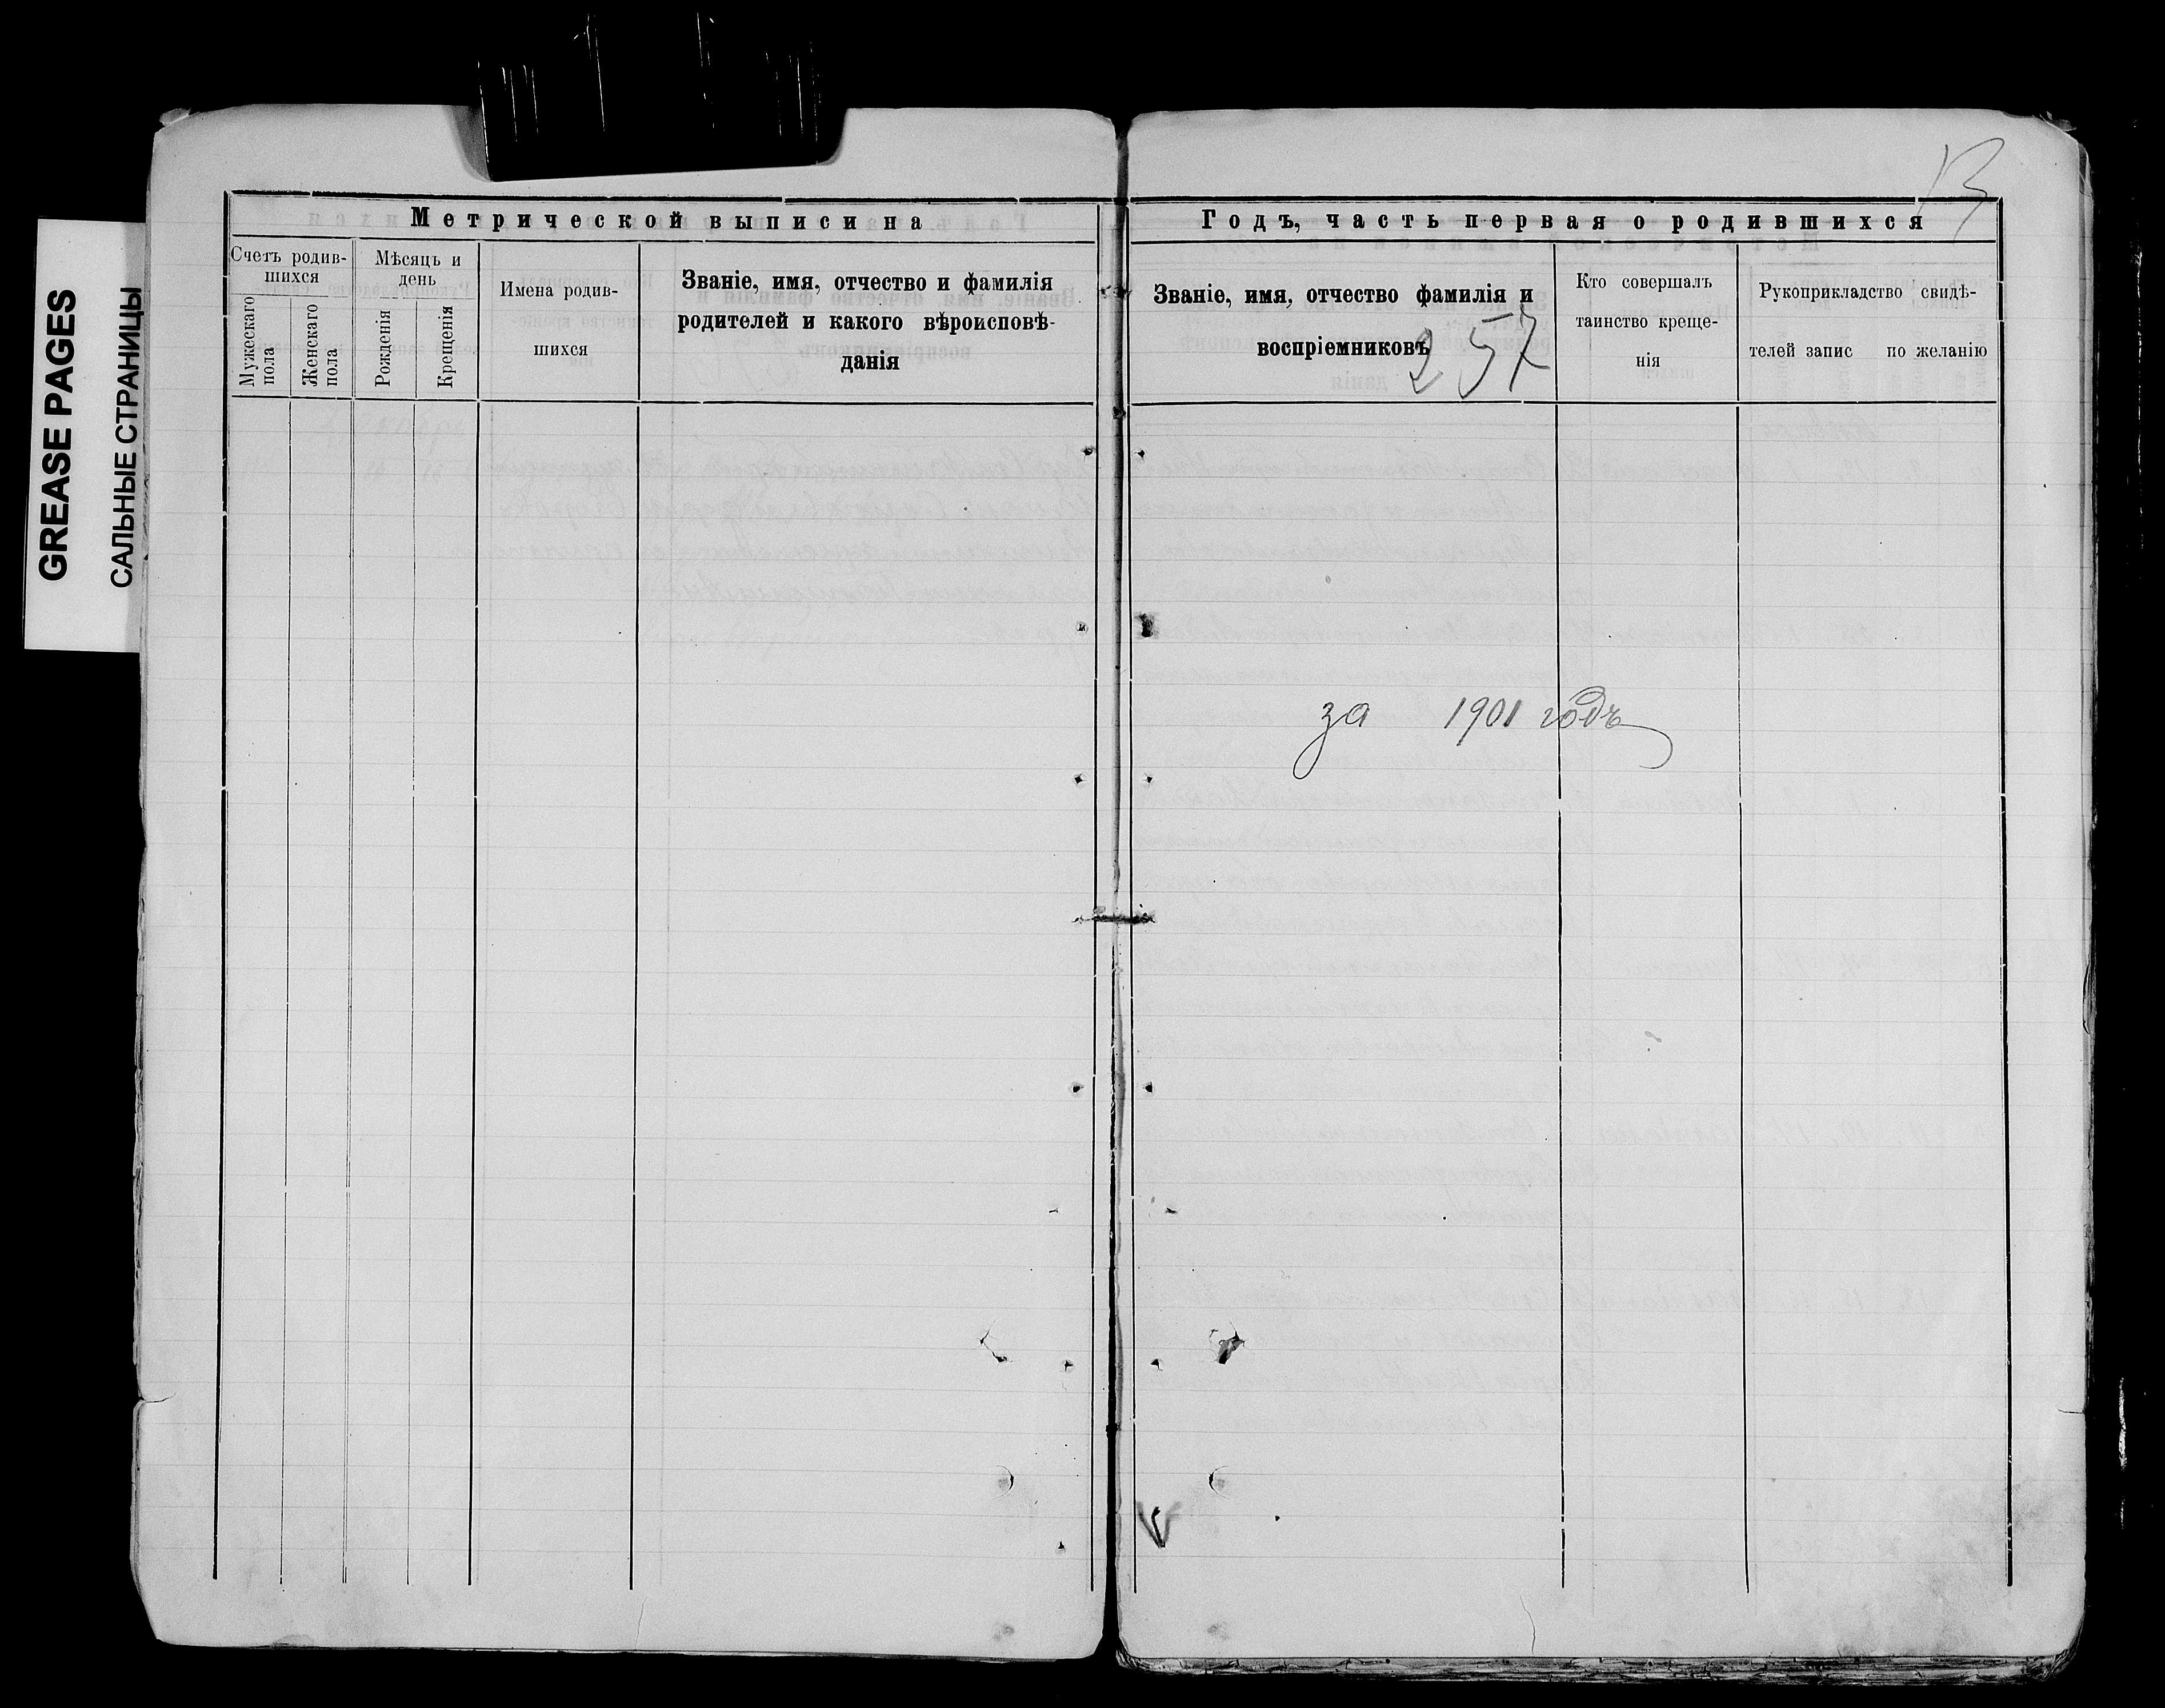 GREASE PAGES
САЛЬНЫЕ СТРАНИЦЫ
13
Метрической выписина
Счетъ родив-
шихся
Мужескаго
пола
Женскаго
пола
Мѣсяцъ и
день
Рожденія
Крещенія
Имена родив-
шихся
Званіе, имя, отчество и фамилія
родителей и какого вѣроисповѣ-
данія
Годъ, часть первая о родившихся
Званіе, имя, отчество фамилія и
воспріемниковъ
257
Кто совершалъ
таинство креще-
нія
Рукоприкладство свидѣ-
телей запис по желанію
за 1901 годъ